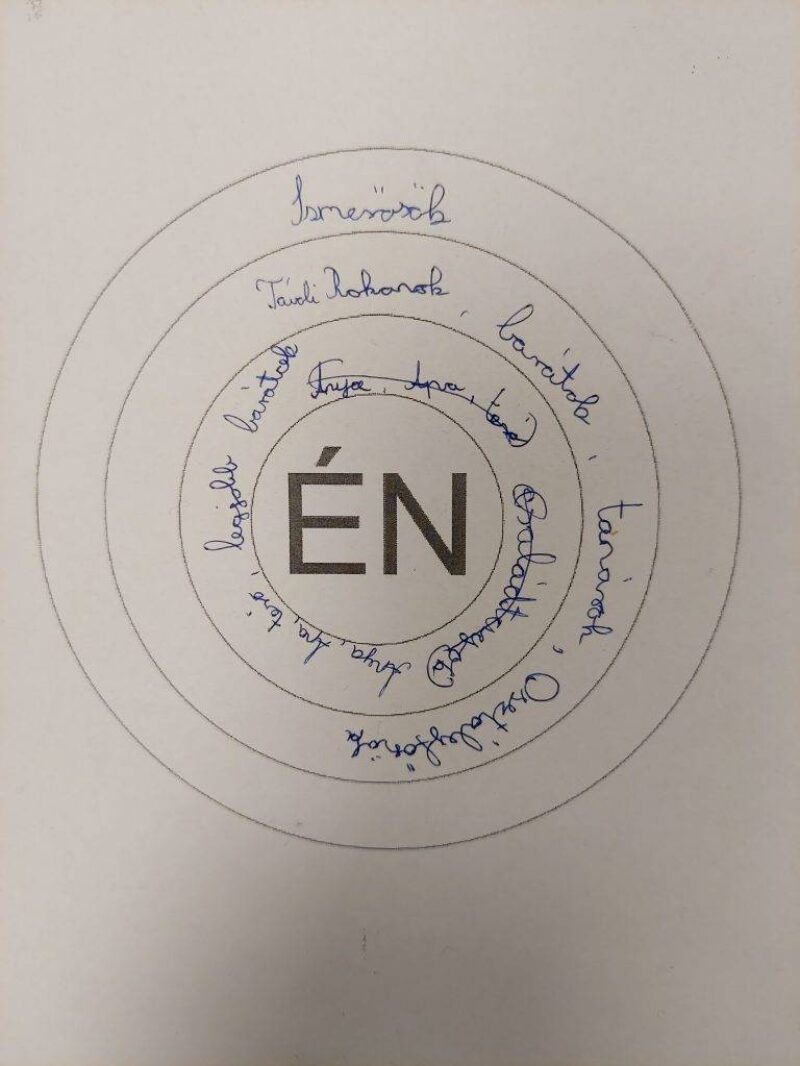 Ismerősök
Távoli Rokonok, barátok, tanárok, Osztálytársak
Anya, Apa, tesó
Anya, Apa, tesó, legjobb barátok
ÉN